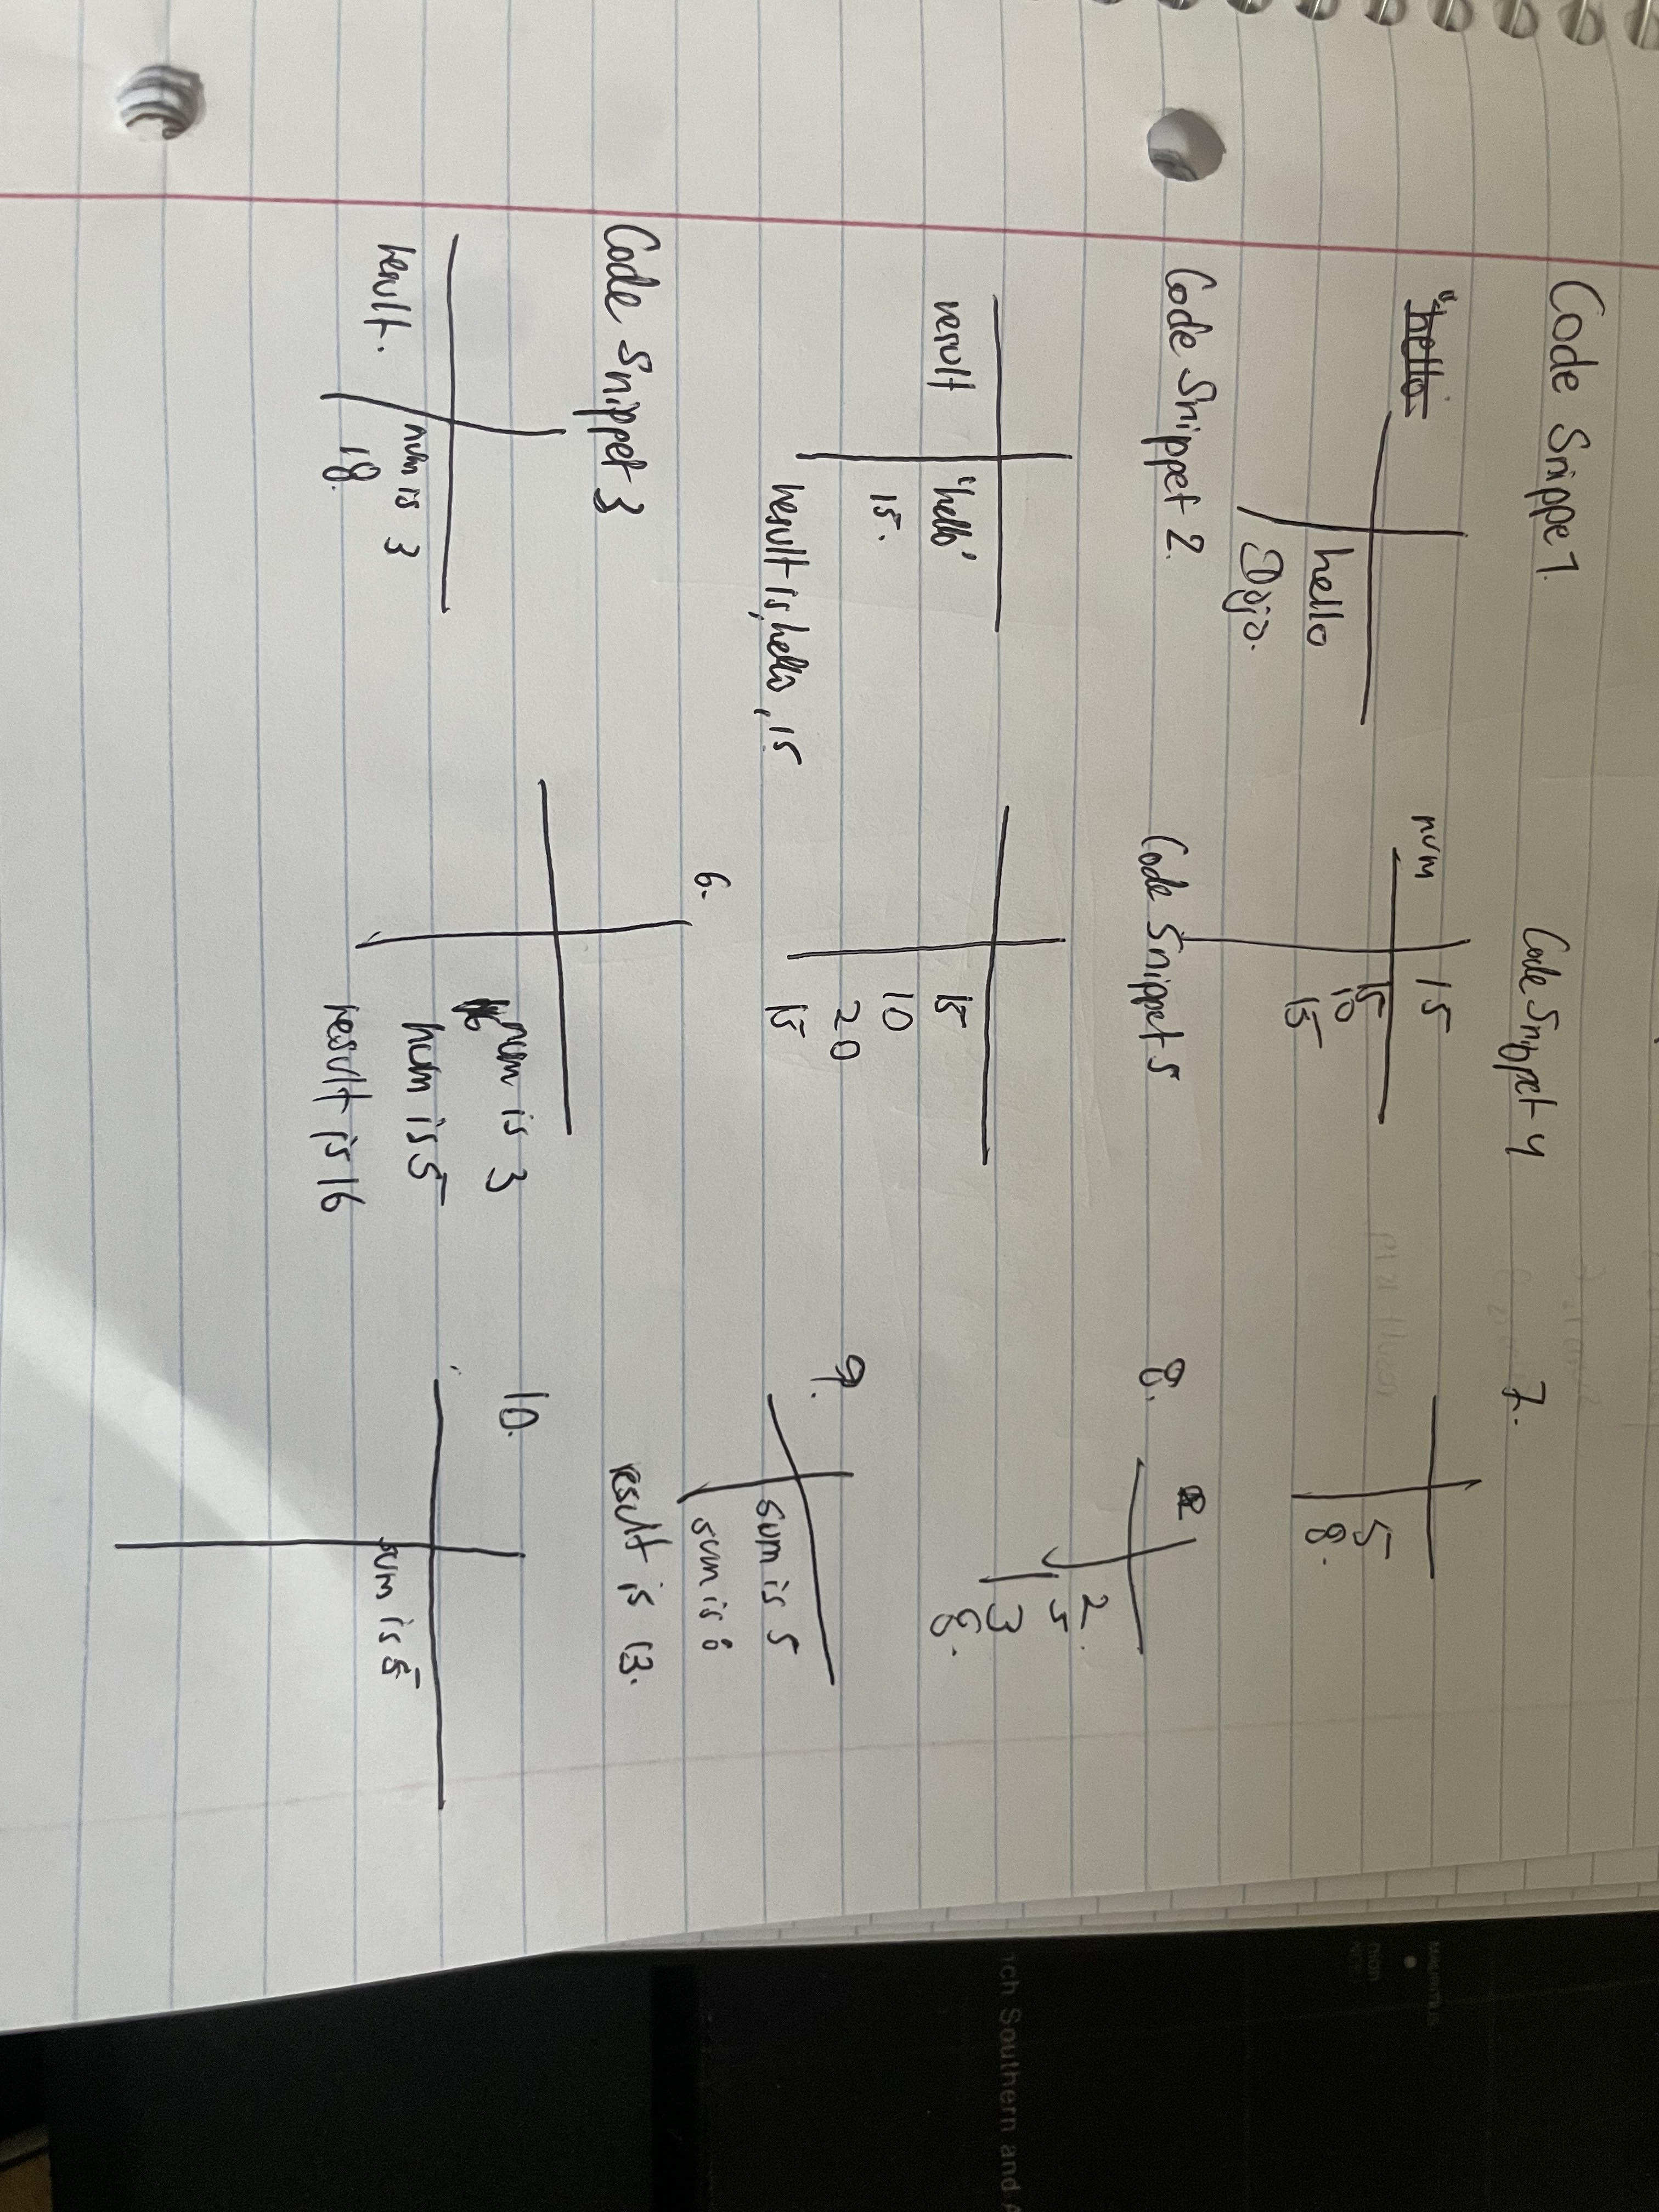 Code Snippe 1.
"hello
hello
Dojo.
Code Snippet 2.
result
"hello'
15.
result is, hello, 15
Code Snippet 3
num is 3
result.
18.
Code Snippet 4
num
15
15
10
15
Code Snippet 5
15
10
20
15
6.
num is 3
num is 5
result is 16
7.
5
8.
8.
2.
5
3
8.
9.
sum is 5
sum is 8
result is 13.
10.
sum is 5
nch Southern and A